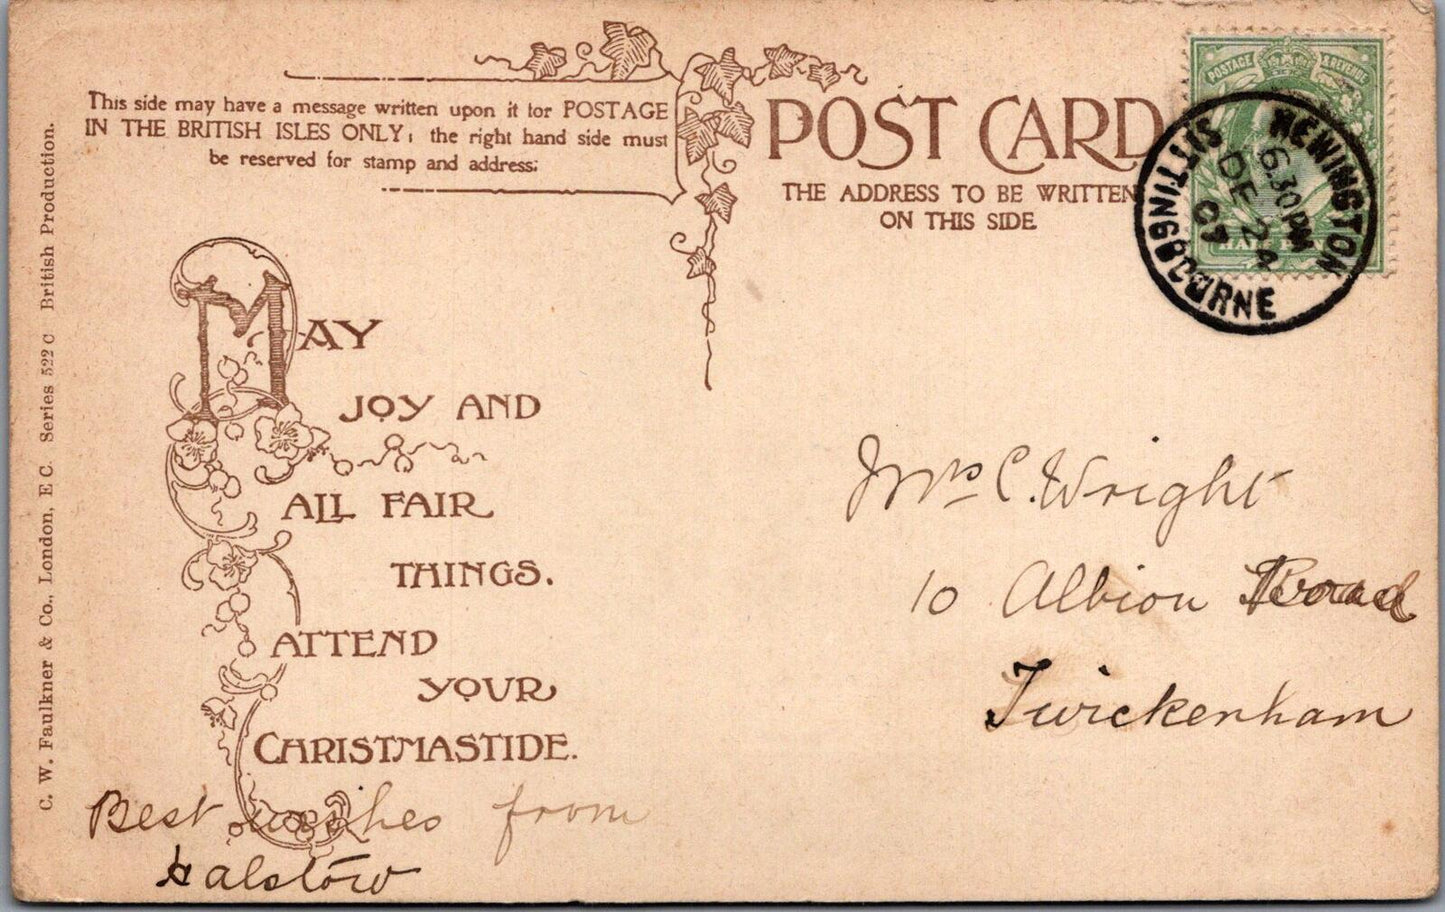 This side may have a message written upon it for POSTAGE
IN THE BRITISH ISLES ONLY; the right hand side must
be reserved for stamp and address;
POST CARD
THE ADDRESS TO BE WRITTEN
ON THIS SIDE
POSTAGE & REVENUE
HALF PENNY
NEWINGTON
SITTINGBOURNE
6.30 PM
DE 24
07
C. W. Faulkner & Co., London, E C. Series 522 C British Production.
MAY
JOY AND
ALL FAIR
THINGS.
ATTEND
YOUR
CHRISTMASTIDE.
Best wishes from
Halstow
Mrs C. Wright
10 Albion Road
Twickenham